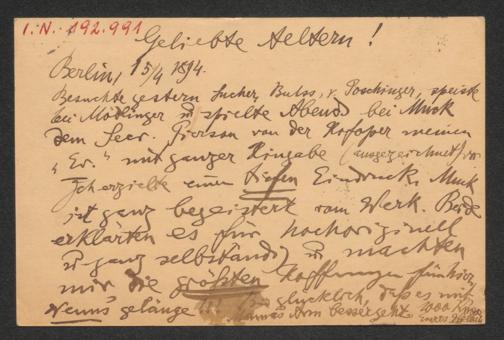 I.N. 192.991
Geliebte Aeltern!
Berlin, 15/4 1894.
Besuchte gestern Sucher, Bulss, v. Poschinger, speiste
bei Mödlinger u spielte Abends bei Muck
dem Secr. Pierson von der Hofoper meinen
"Ev." mit ganzer Hingabe (ausgezeichnet) vor
Ich erzielte einen tiefen Eindruck. Muck
ist ganz begeistert vom Werk. Beide
erklärten es für hochoriginell
u ganz selbständig u machten
mir die größten Hoffnungen
Wenns gelänge! Bin glücklich, daß es mit
Mamas Arm bessergeht. 1000 Küsse